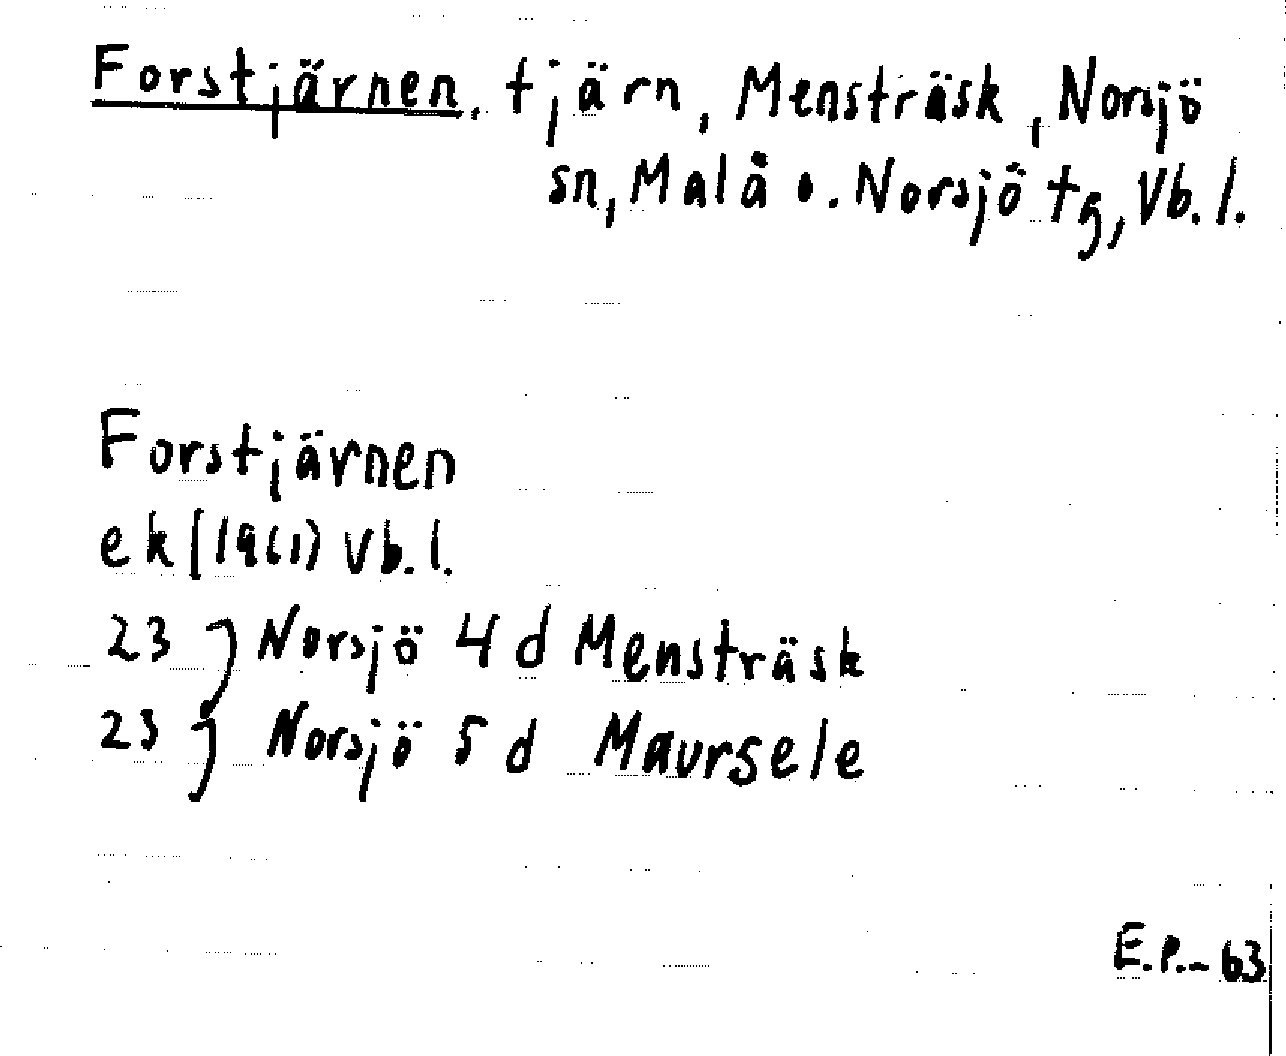 Forstjärnen, tjärn, Mensträsk, Norsjö
sn, Malå o. Norsjö tg, Vb. l.
Forstjärnen
ek (1961) Vb. l.
23 J Norsjö 4 d Mensträsk
23 J Norsjö 5 d Maursele
E.P.-63